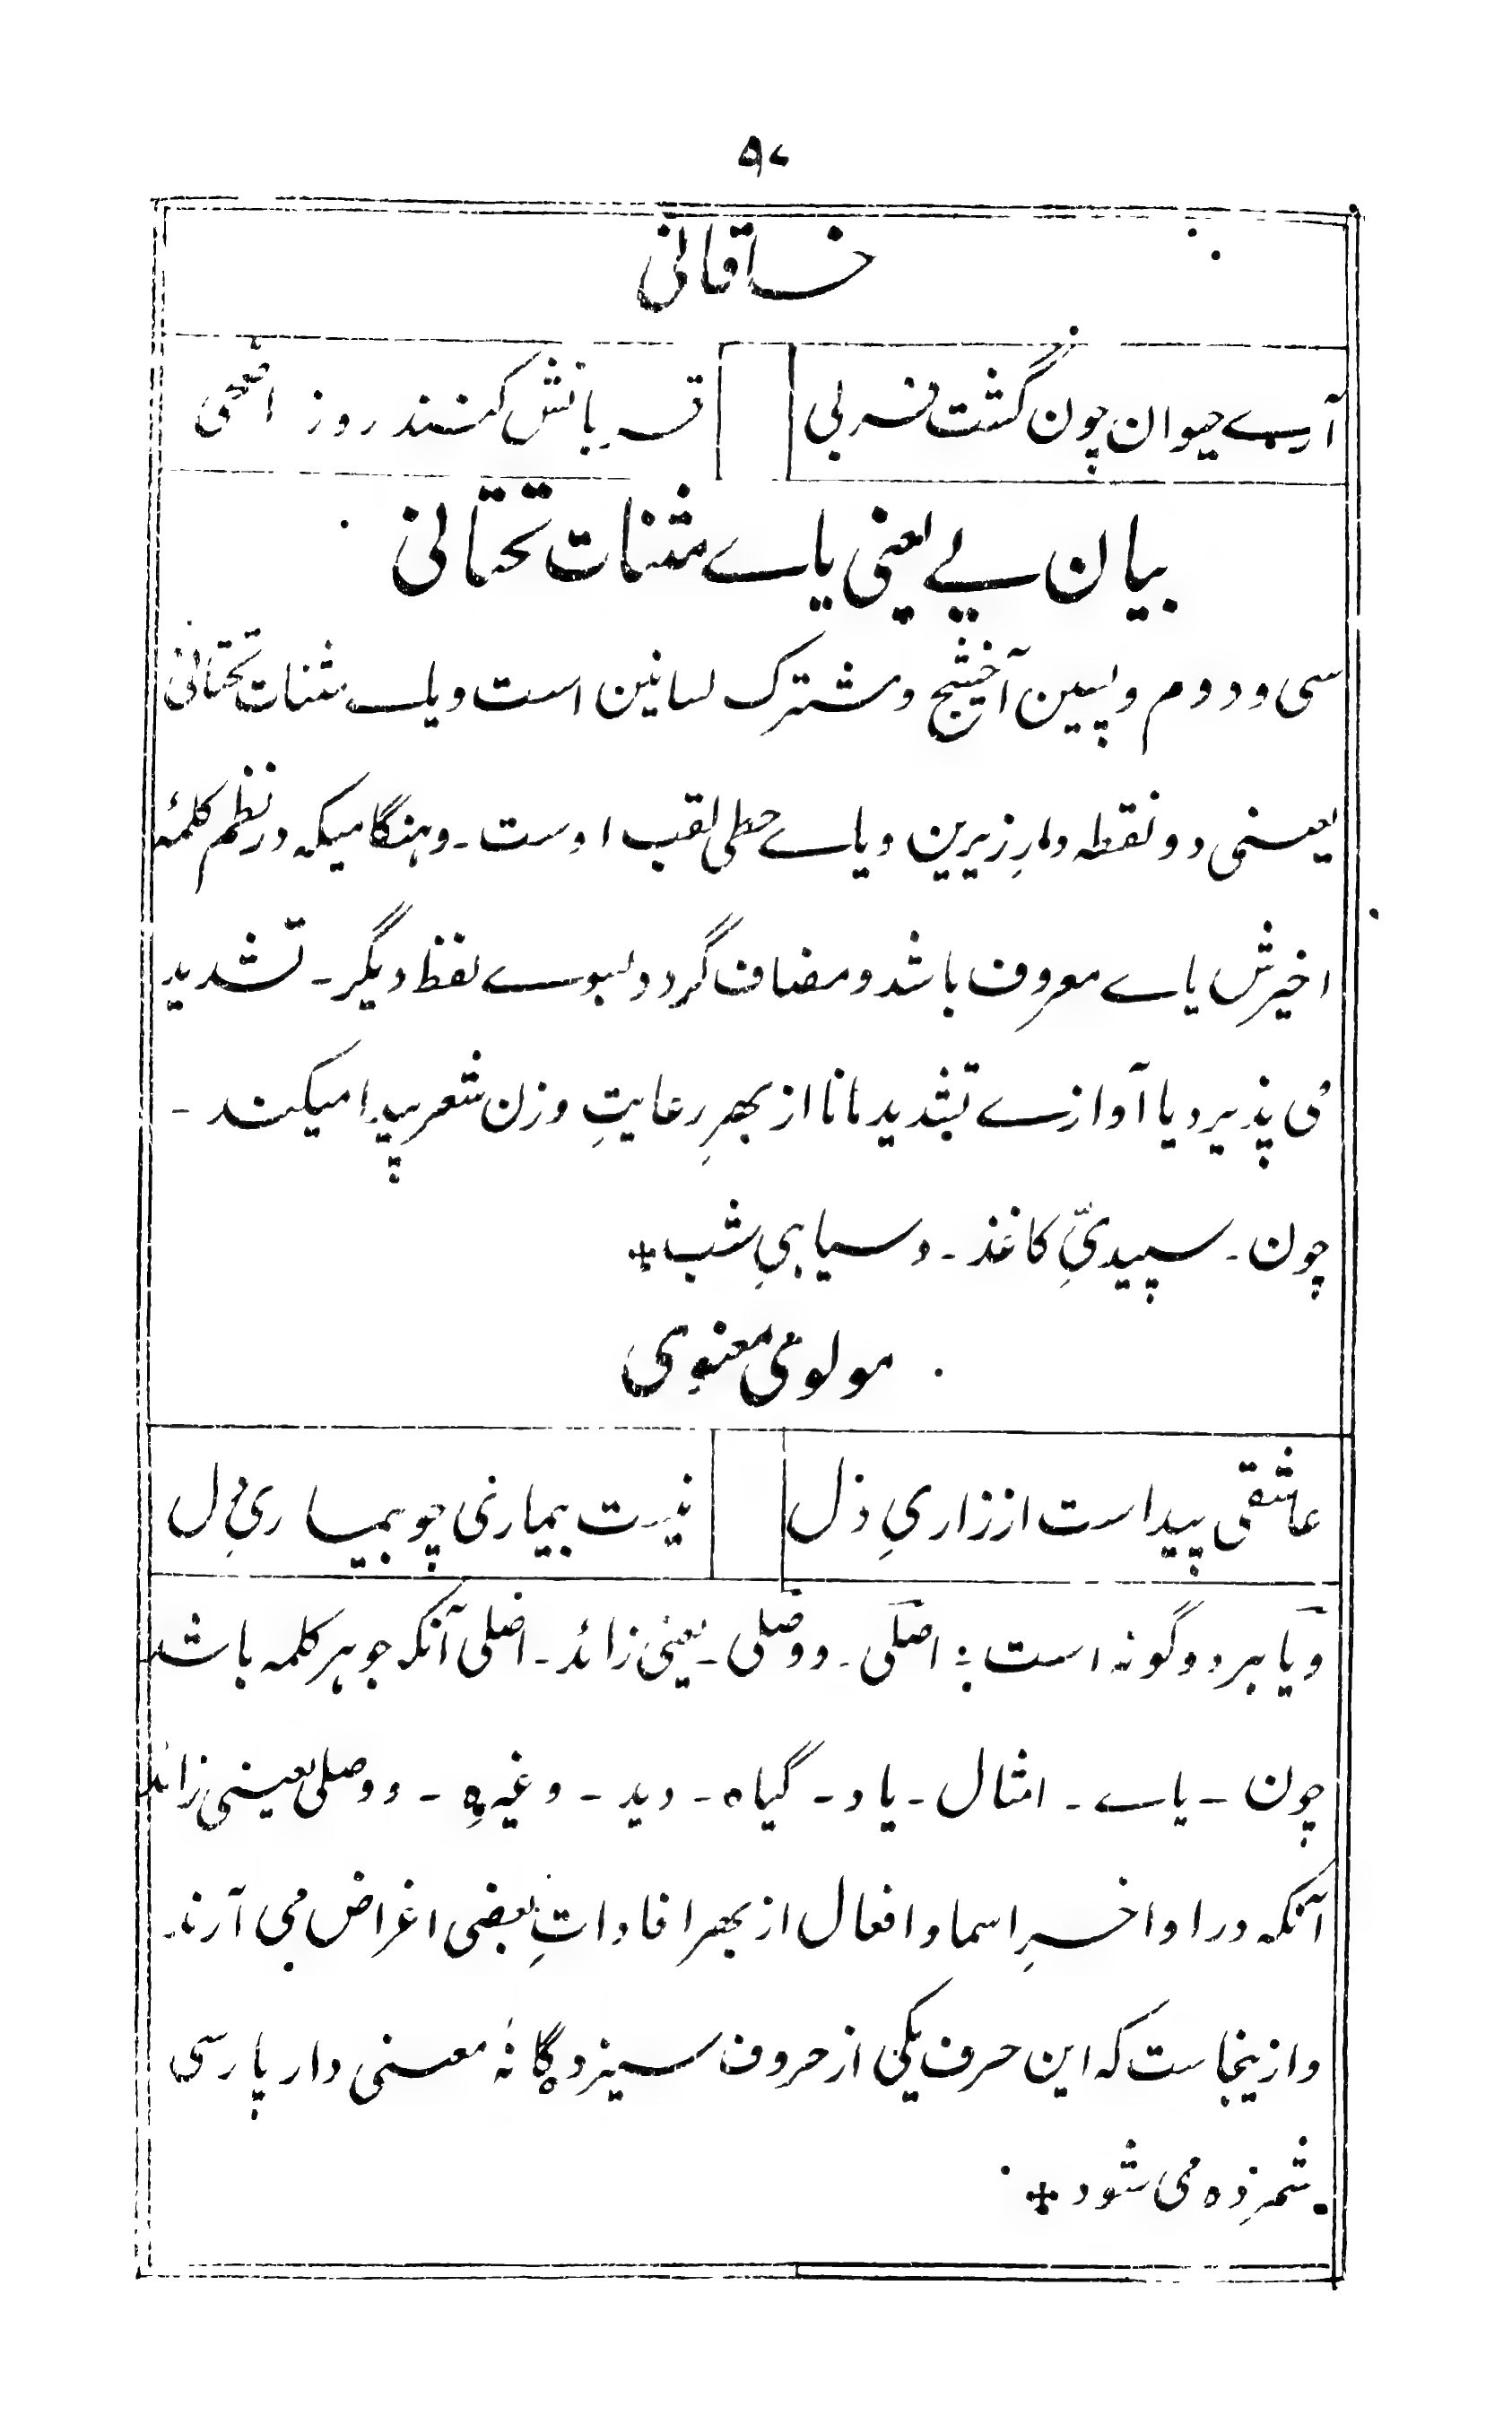 خاقانی
آرے حیوان چون گشت فربی
قربانش کنند روز اضحی
بیان یے یعنی یاے مثنات تحتانی
سی و دوم و پسین آخشیج و مشترک لسانین است و یاے مثنات تحتانی
یعنی دو نقطه دارِ زیرین و یاے حطی لقب اوست ـ و هنگامیکه در نظم کلمهٔ
اخیرش یاے معروف باشد و مضاف گردد بسوے لفظ دیگر ـ تشدید
می پذیرد یا آوازے تشدید مانا از بهرِ رعایتِ وزن شعر پیدا میکند ـ
چون ـ سپیدیِّ کاغذ ـ و سیاہیِ شب
مولوی معنوی
عاشقی پیداست از زاریِ دل
نیست بیماری چو بیماریِ دل
و یا بر دو گونه است : اصلی ـ و وصلی ـ یعنی زائد ـ اصلی آنکه جوهر کلمه باشد
چون ـ یاے ـ امثال ـ یاد ـ گیاه ـ دید ـ وغیره ـ و وصلی یعنی زائد
آنکه در اواخرِ اسما و افعال از بهر افاداتِ بعضی اغراض می آرند
و ازینجاست که این حرف یکی از حروف سیزده گانهٔ معنی دار پارسی
شمرده می شود